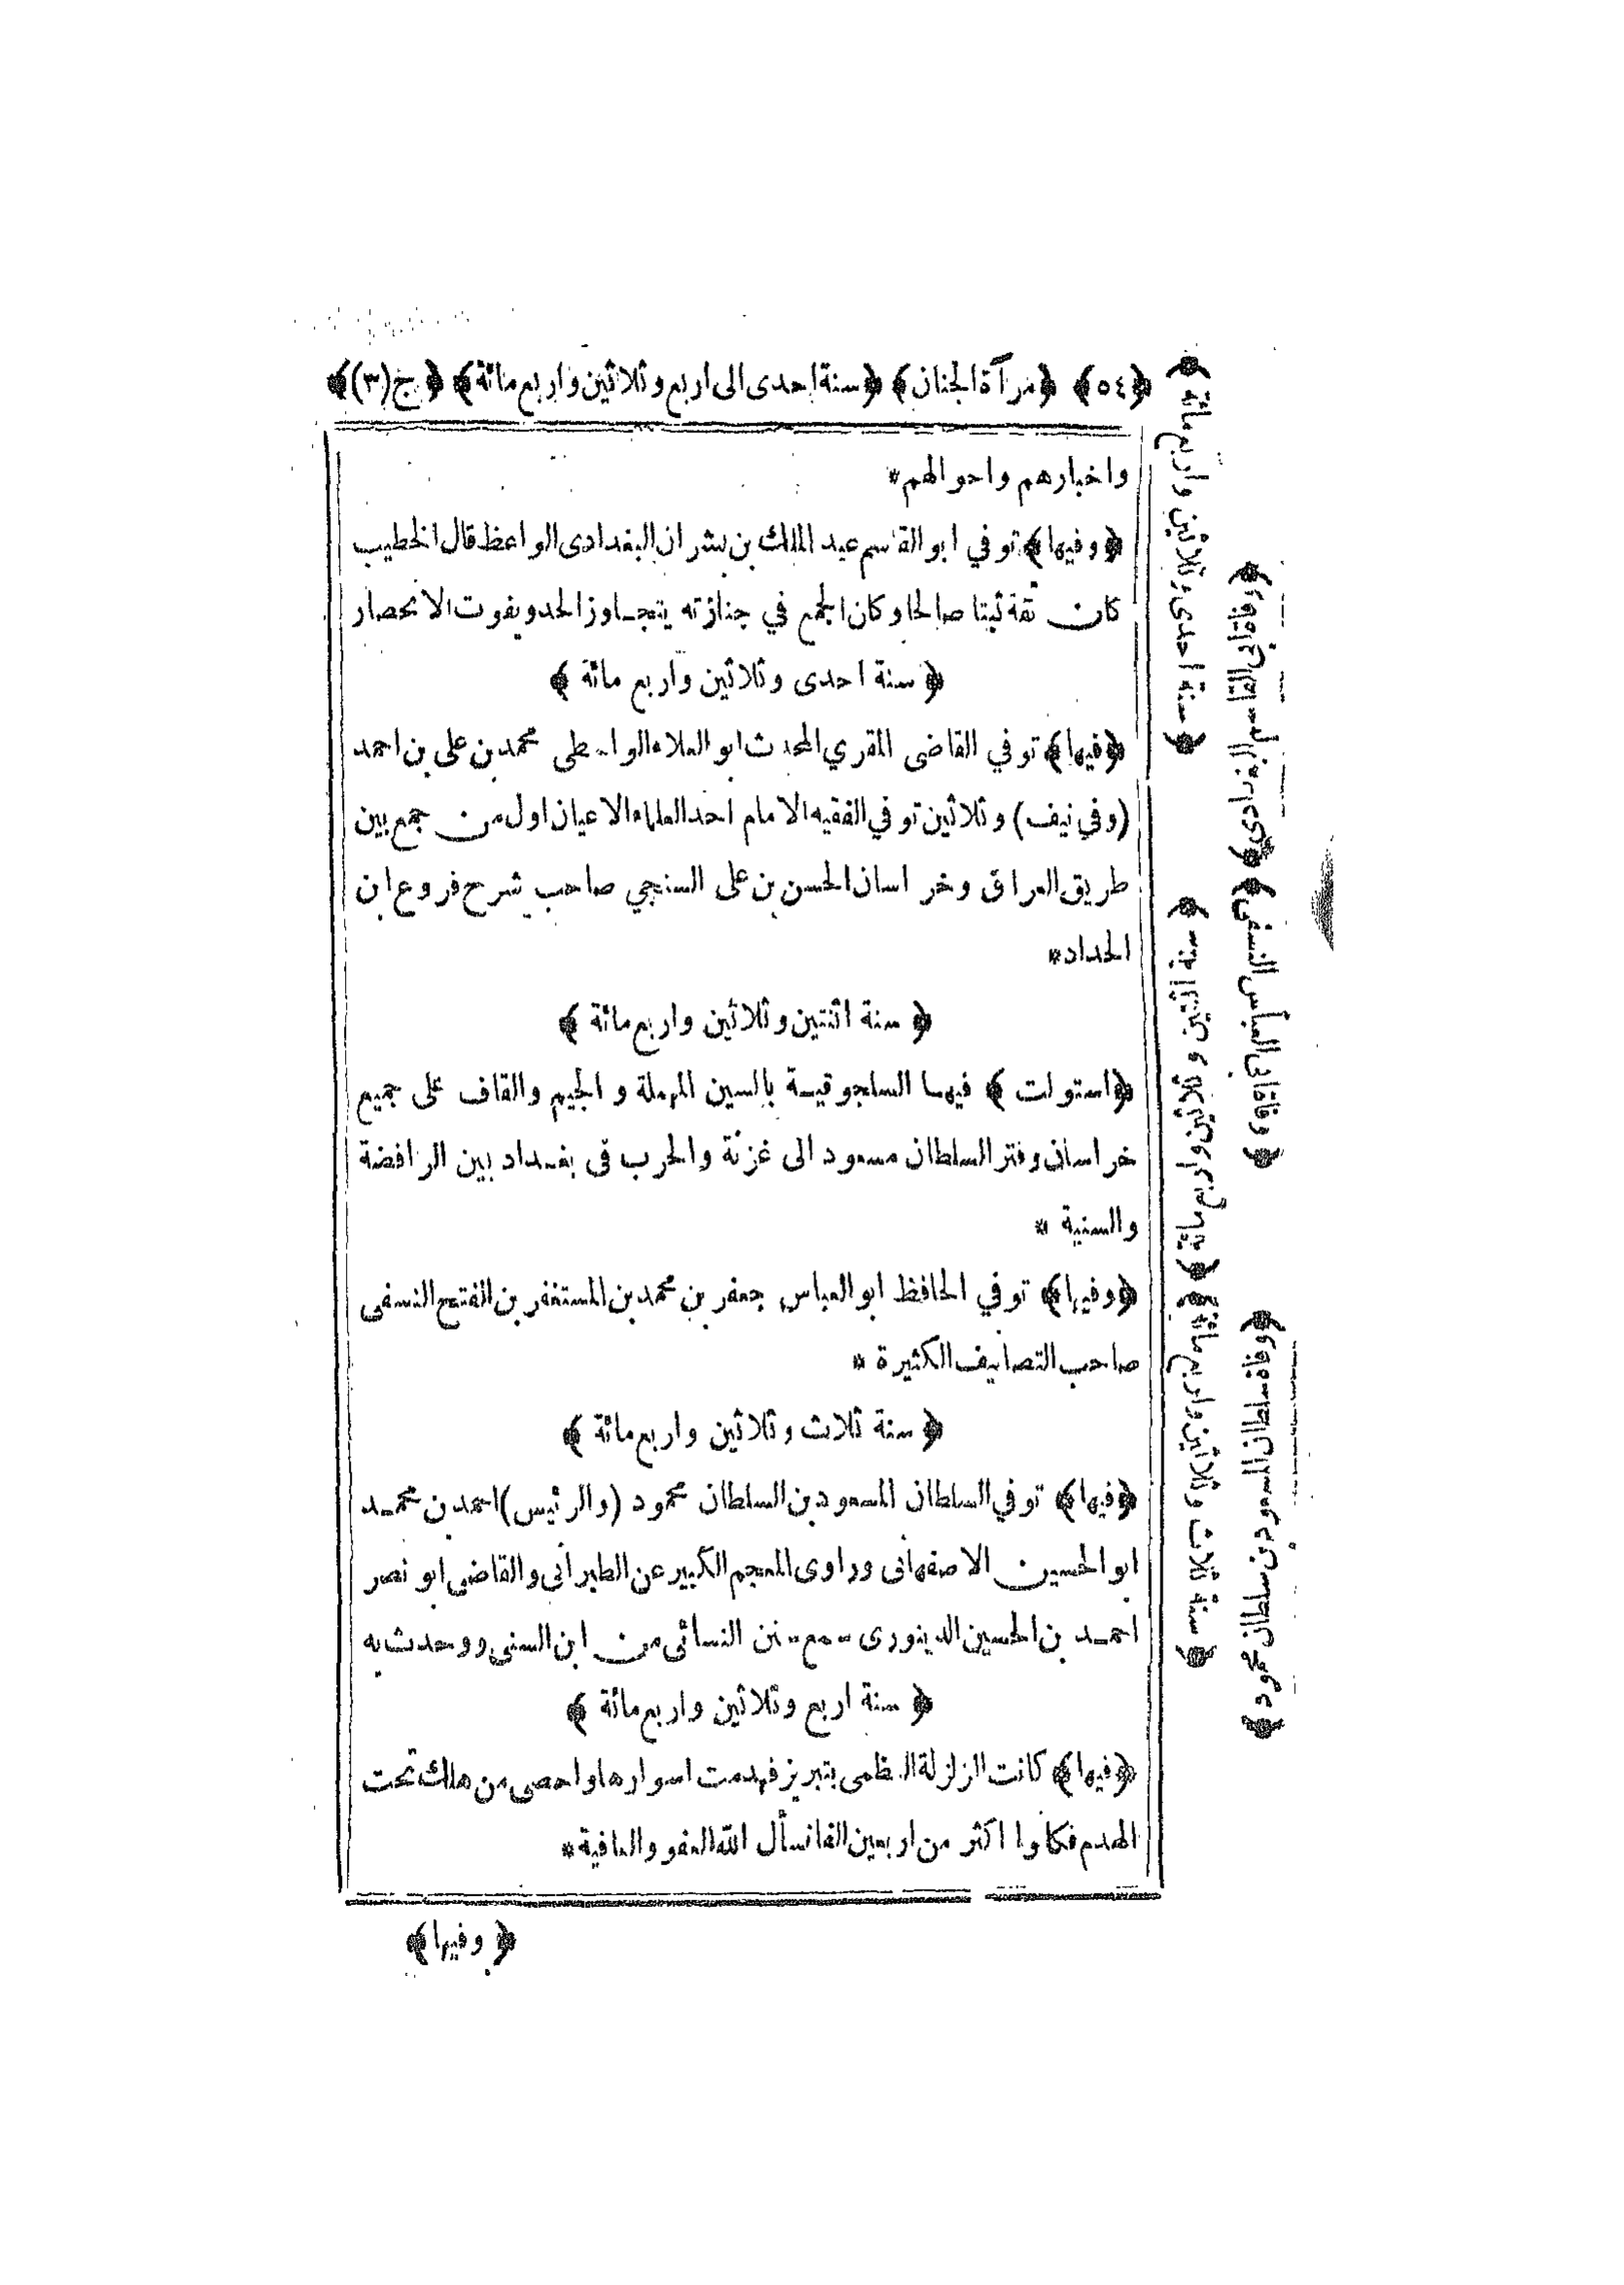 ﴿٥٤﴾ ﴿مرآة الجنان﴾ ﴿سنة احدى الى اربع وثلاثين واربع مائة﴾ ﴿ج(٣)﴾
واخبارهم واحوالهم*
﴿وفيها﴾ توفي ابو القاسم عبد الملك بن بشران البغدادى الواعظ قال الخطيب
كان ثقة ثبتا صالحا وكان الجمع في جنازته يتجاوز الحد ويفوت الانحصار
﴿سنة احدى وثلاثين واربع مائة﴾
﴿فيها﴾ توفي القاضى المقري المحدث ابو العلاء الواسطى محمد بن على بن احمد
(وفي نيف) وثلاثين توفي الفقيه الامام احد العلماء الاعيان اول من جمع بين
طريق العراق وخراسان الحسن بن على السنجي صاحب شرح فروع ابن
الحداد*
﴿سنة اثنتين وثلاثين واربع مائة﴾
﴿استولت﴾ فيها السلجوقية بالسين المهملة و الجيم والقاف على جميع
خراسان وفتر السلطان مسعود الى غزنة والحرب فى بغداد بين الرافضة
والسنية *
﴿وفيها﴾ توفي الحافظ ابو العباس جعفر بن محمد بن المستغفر بن الفتح النسفى
صاحب التصانيف الكثيرة *
﴿سنة ثلاث وثلاثين واربع مائة﴾
﴿فيها﴾ توفي السلطان المسعود بن السلطان محمود (والرئيس) احمد بن محمد
ابو الحسين الاصفهانى وراوى المعجم الكبير عن الطبرانى والقاضى ابو نصر
احمد بن الحسين الدينورى سمع سنن النسائى من ابن السنى ووحدث به
﴿سنة اربع وثلاثين واربع مائة﴾
﴿فيها﴾ كانت الزلزلة العظمى بتبريز فهدمت اسوارها واحصى من هلك تحت
الهدم فكانوا اكثر من اربعين الفا نسأل الله العفو والعافية*
﴿وفيها﴾
﴿سنة احدى وثلاثين واربع مائة﴾
﴿وفاة ابى العباس النسفى﴾
﴿سنة ثلاث وثلاثين واربع مائة﴾
﴿وفاة سلطان المسعود بن سلطان محمود﴾